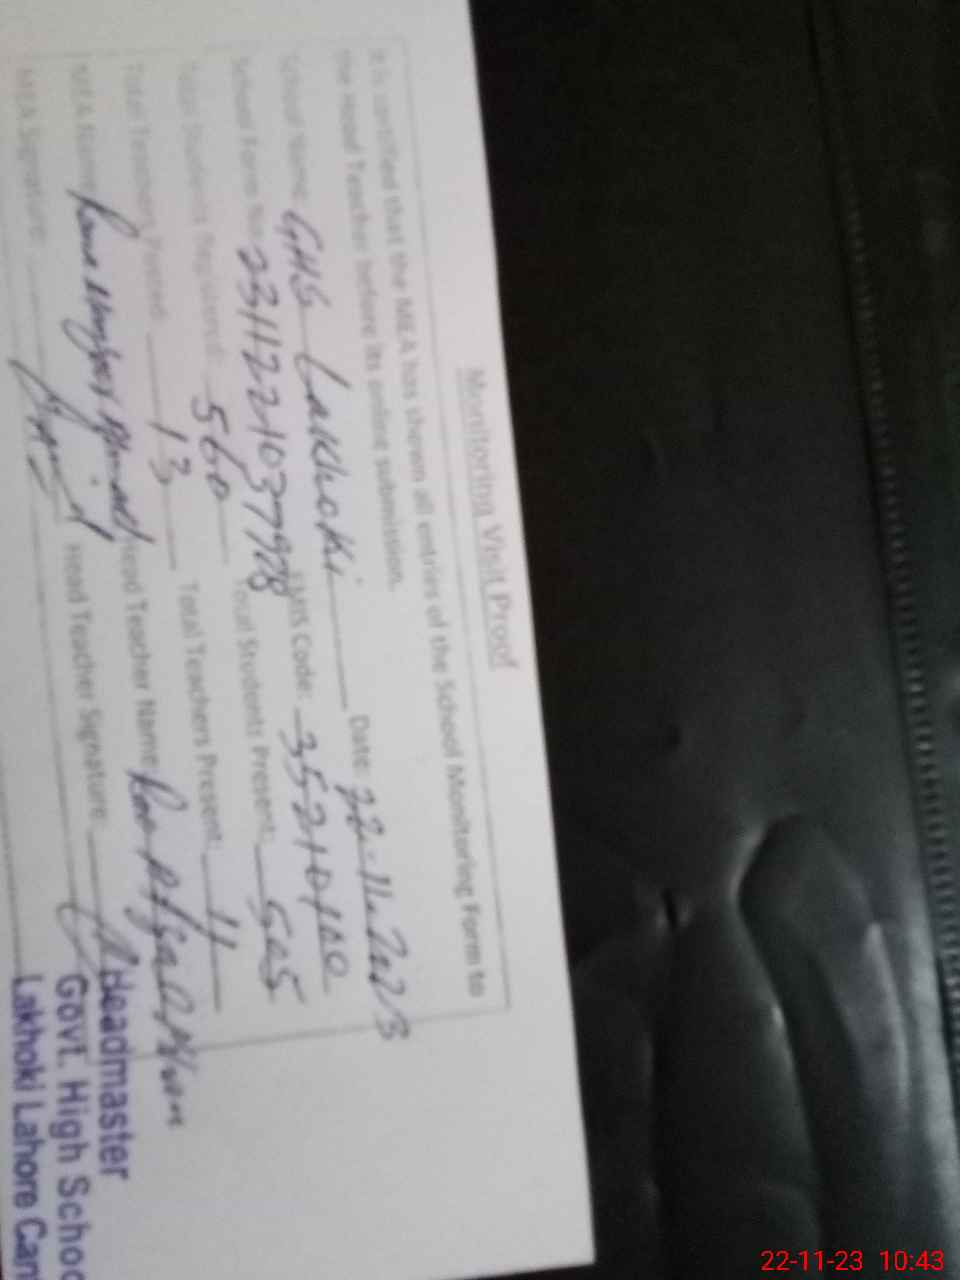 Monitoring Visit Proof
It is certified that the MEA has shown all entries of the School Monitoring Form to
the Head Teacher before its online submission.
School Name: GHS Lakhoki Date: 22-11-2023
School Form No: 23112210377978 EMIS Code: 35210400
Total Students Registered: 560 Total Students Present: 505
Total Teachers Posted: 13 Total Teachers Present: 11
MEA Name: Head Teacher Name:
MEA Signature: Head Teacher Signature:
Headmaster
Govt. High Schoo
Lakhoki Lahore Can
22-11-23 10:43